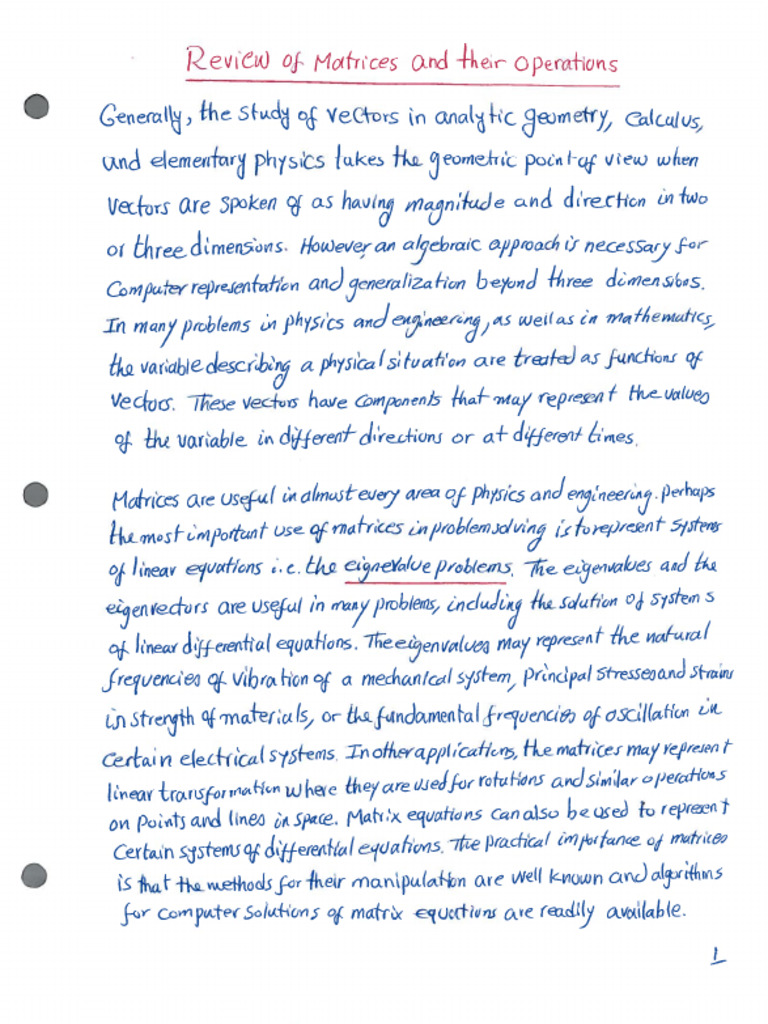 Review of Matrices and their Operations
Generally, the study of vectors in analytic geometry, calculus,
and elementary physics takes the geometric point of view when
vectors are spoken of as having magnitude and direction in two
or three dimensions. However, an algebraic approach is necessary for
computer representation and generalization beyond three dimensions.
In many problems in physics and engineering, as well as in mathematics,
the variable describing a physical situation are treated as functions of
vectors. These vectors have components that may represent the values
of the variable in different directions or at different times.
Matrices are useful in almost every area of physics and engineering. Perhaps
the most important use of matrices in problem solving is to represent systems
of linear equations i.e. the eignevalue problems. The eigenvalues and the
eigenvectors are useful in many problems, including the solution of systems
of linear differential equations. The eigenvalues may represent the natural
frequencies of vibration of a mechanical system, principal stresses and strains
in strength of materials, or the fundamental frequencies of oscillation in
certain electrical systems. In other applications, the matrices may represent
linear transformation where they are used for rotations and similar operations
on points and lines in space. Matrix equations can also be used to represent
certain systems of differential equations. The practical importance of matrices
is that the methods for their manipulation are well known and algorithms
for computer solutions of matrix equations are readily available.
1